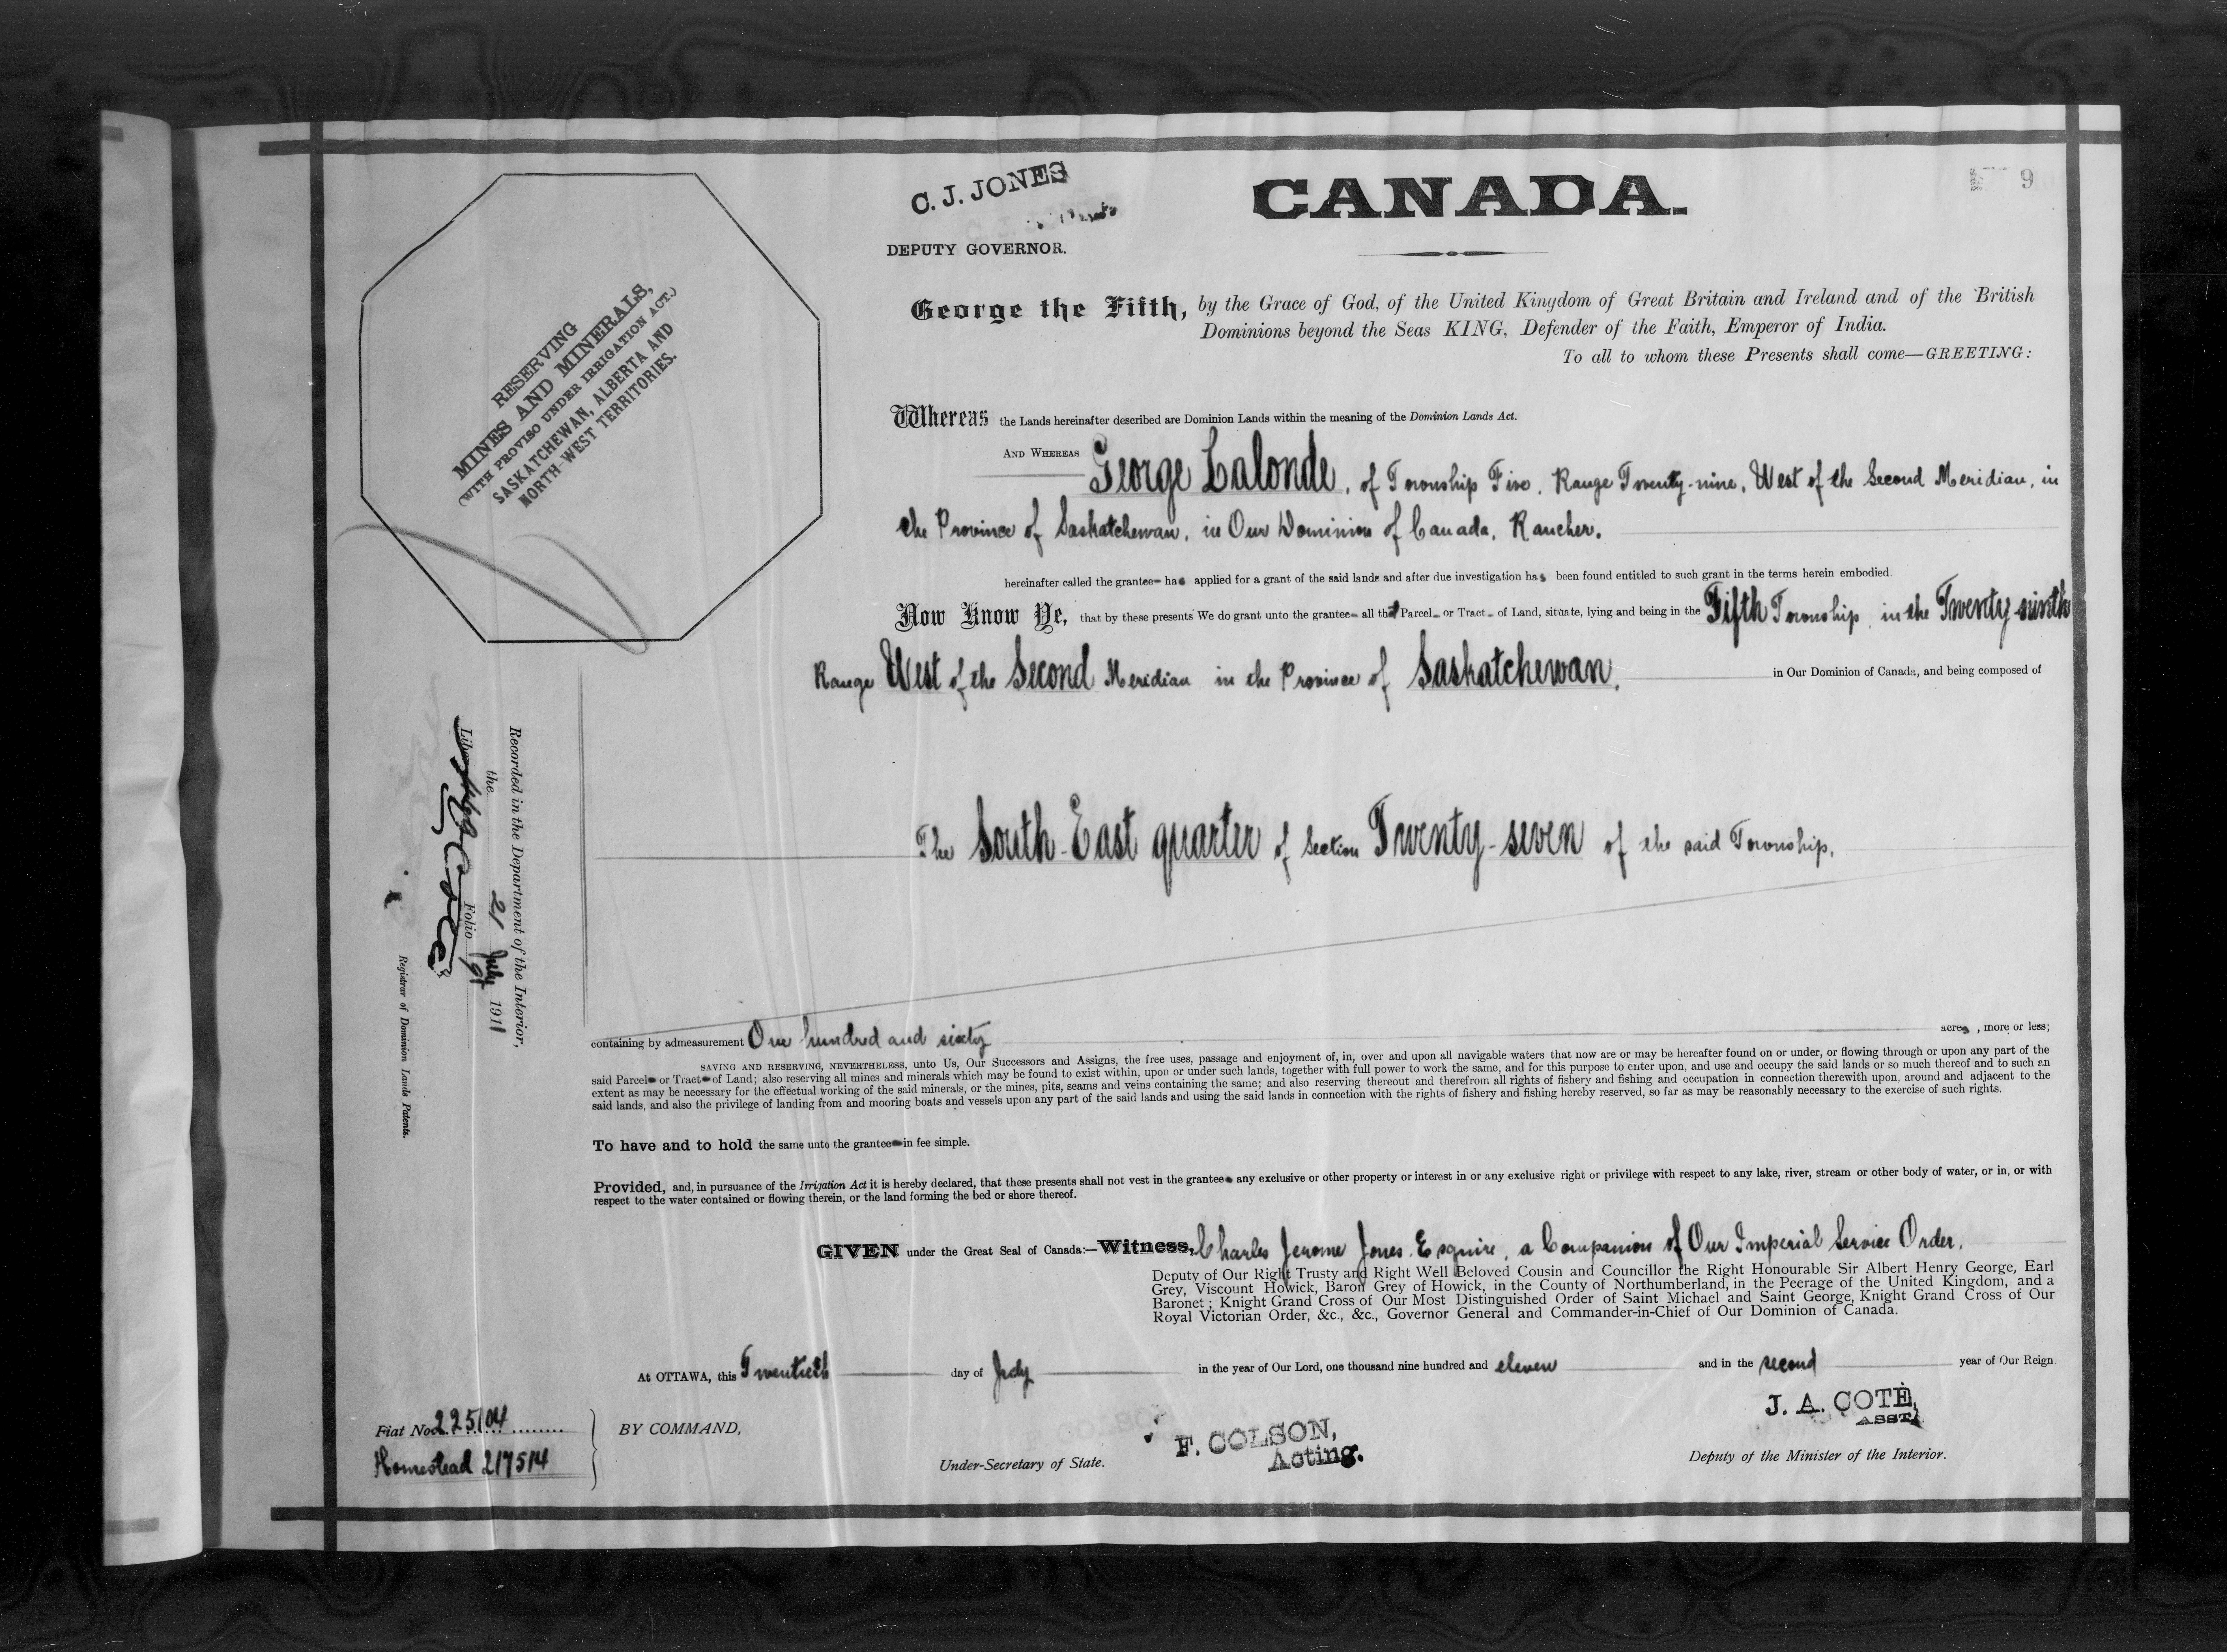 C. J. JONES
DEPUTY GOVERNOR.
CANADA.
9
RESERVING
MINES AND MINERALS,
(WITH PROVISO UNDER IRRIGATION ACT.)
SASKATCHEWAN, ALBERTA AND
NORTH-WEST TERRITORIES.
George the Fifth, by the Grace of God, of the United Kingdom of Great Britain and Ireland and of the British
Dominions beyond the Seas KING, Defender of the Faith, Emperor of India.
To all to whom these Presents shall come—GREETING:
Whereas the Lands hereinafter described are Dominion Lands within the meaning of the Dominion Lands Act.
AND WHEREAS George Lalonde, of Township Five, Range Twenty-nine, West of the Second Meridian, in
the Province of Saskatchewan, in Our Dominion of Canada, Rancher.
hereinafter called the grantee has applied for a grant of the said lands and after due investigation has been found entitled to such grant in the terms herein embodied.
Now Know Ye, that by these presents We do grant unto the grantee all that Parcel or Tract of Land, situate, lying and being in the Fifth Township, in the Twenty-ninth
Range West of the Second Meridian in the Province of Saskatchewan, in Our Dominion of Canada, and being composed of
The South-East quarter of Section Twenty-seven of the said Township,
Recorded in the Department of the Interior,
the 21 July 1911
Liber Folio 9
Registrar of Dominion Lands Patents.
containing by admeasurement One hundred and sixty acres, more or less;
SAVING AND RESERVING, NEVERTHELESS, unto Us, Our Successors and Assigns, the free uses, passage and enjoyment of, in, over and upon all navigable waters that now are or may be hereafter found on or under, or flowing through or upon any part of the
said Parcel or Tract of Land; also reserving all mines and minerals which may be found to exist within, upon or under such lands, together with full power to work the same, and for this purpose to enter upon, and use and occupy the said lands or so much thereof and to such an
extent as may be necessary for the effectual working of the said minerals, or the mines, pits, seams and veins containing the same; and also reserving thereout and therefrom all rights of fishery and fishing and occupation in connection therewith upon, around and adjacent to the
said lands, and also the privilege of landing from and mooring boats and vessels upon any part of the said lands and using the said lands in connection with the rights of fishery and fishing hereby reserved, so far as may be reasonably necessary to the exercise of such rights.
To have and to hold the same unto the grantee in fee simple.
Provided, and, in pursuance of the Irrigation Act it is hereby declared, that these presents shall not vest in the grantee any exclusive or other property or interest in or any exclusive right or privilege with respect to any lake, river, stream or other body of water, or in, or with
respect to the water contained or flowing therein, or the land forming the bed or shore thereof.
GIVEN under the Great Seal of Canada:—Witness, Charles Jerome Jones, Esquire, a Companion of Our Imperial Service Order,
Deputy of Our Right Trusty and Right Well Beloved Cousin and Councillor the Right Honourable Sir Albert Henry George, Earl
Grey, Viscount Howick, Baron Grey of Howick, in the County of Northumberland, in the Peerage of the United Kingdom, and a
Baronet; Knight Grand Cross of Our Most Distinguished Order of Saint Michael and Saint George, Knight Grand Cross of Our
Royal Victorian Order, &c., &c., Governor General and Commander-in-Chief of Our Dominion of Canada.
At OTTAWA, this Twentieth day of July in the year of Our Lord, one thousand nine hundred and eleven and in the second year of Our Reign.
Fiat No. 225104
Homestead 217514
BY COMMAND,
F. COLSON,
Acting.
Under-Secretary of State.
J. A. COTÉ,
ASST.
Deputy of the Minister of the Interior.